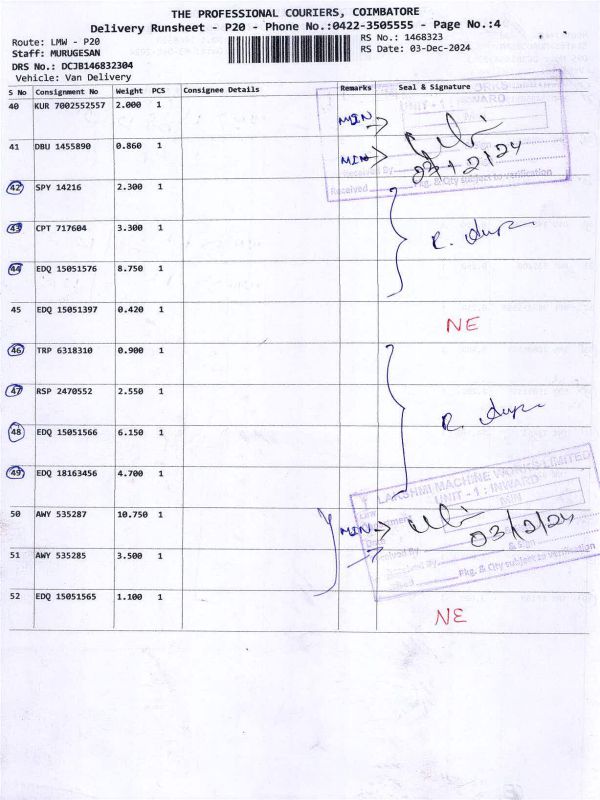 THE PROFESSIONAL COURIERS, COIMBATORE
Delivery Runsheet - P20 - Phone No.:0422-3505555 - Page No.:4
Route: LMW - P20
RS No.: 1468323
Staff: MURUGESAN
RS Date: 03-Dec-2024
DRS No.: DCJB146832304
Vehicle: Van Delivery
S No Consignment No Weight PCS Consignee Details Remarks Seal & Signature
UNIT - 1 : INWARD
40 KUR 7002552557 2.000 1 MIN
41 DBU 1455890 0.860 1 MIN
03/12/24
Received By
Pkg. & Qty subject to verification
Received
42 SPY 14216 2.300 1
43 CPT 717604 3.300 1
R.
44 EDQ 15051576 8.750 1
45 EDQ 15051397 0.420 1
NE
46 TRP 6318310 0.900 1
47 RSP 2470552 2.550 1
R.
48 EDQ 15051566 6.150 1
49 EDQ 18163456 4.700 1
LAKSHMI MACHINE WORKS LIMITED
UNIT - 1 : INWARD
MIN
50 AWY 535287 10.750 1 MIN
03/12/24
Date
& Sign
51 AWY 535285 3.500 1
Received By
Pkg. & Qty subject to verification
52 EDQ 15051565 1.100 1
NE